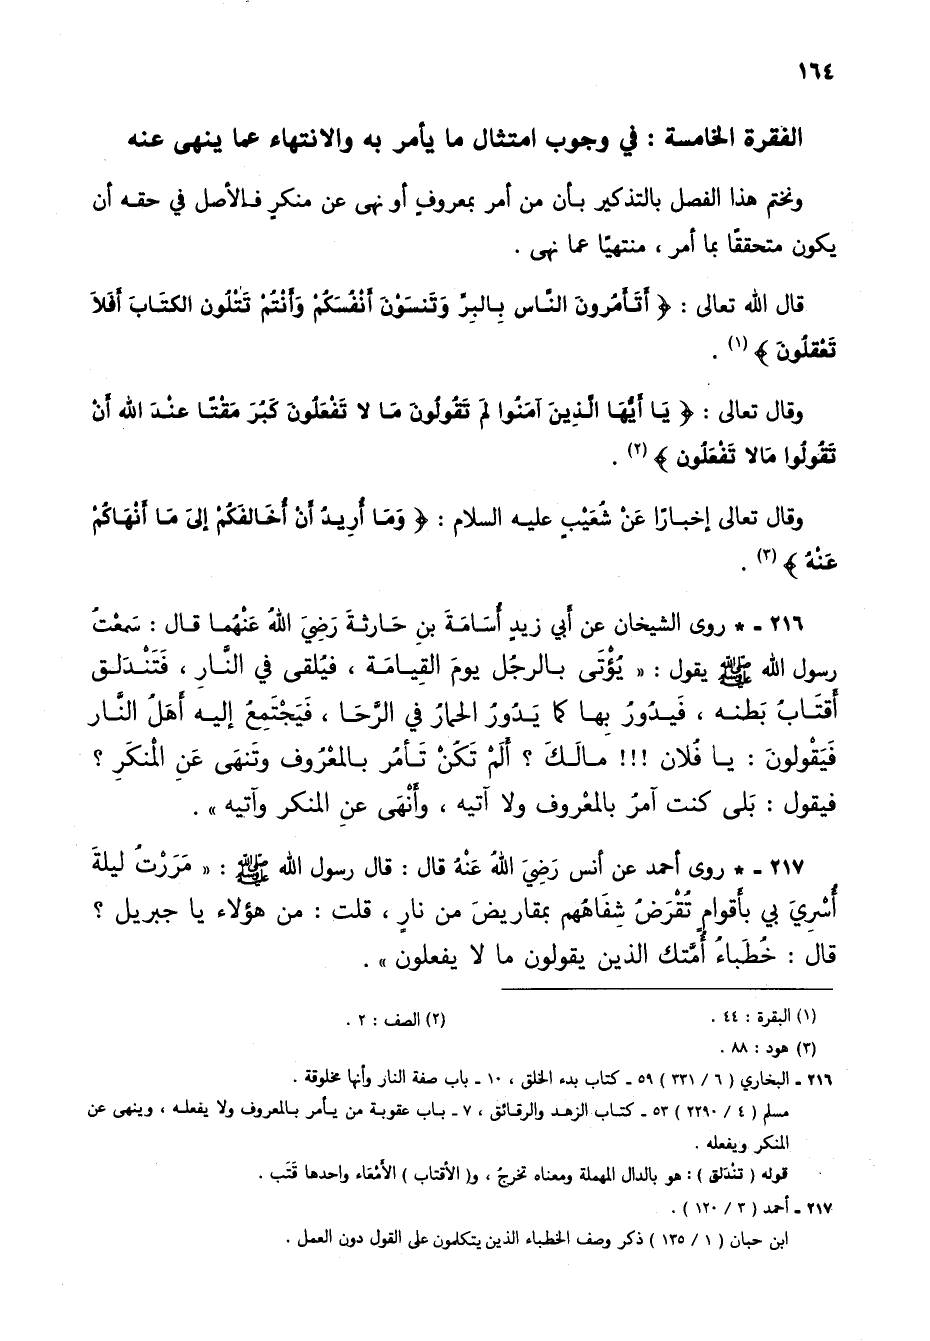 ١٦٤
الفقرة الخامسة : في وجوب امتثال ما يأمر به والانتهاء عما ينهى عنه
ونختم هذا الفصل بالتذكير بأن من أمر بمعروفٍ أو نهى عن منكرٍ فالأصل في حقه أن
يكون متحققًا بما أمر ، منتهيًا عما نهى .
قال الله تعالى : ﴿ أَتَأمُرونَ النَّاس بِالبِرِّ وَتَنسَوْنَ أَنْفُسَكُمْ وَأَنْتُمْ تَتْلُون الكتَابَ أَفَلاَ
تَعْقلُونَ ﴾ (١) .
وقال تعالى : ﴿ يَا أَيُّهَا الَّذِينَ آمَنُوا لَمَ تَقُولُونَ مَا لا تَفْعَلُونَ كَبُرَ مَقْتًا عنْدَ الله أَنْ
تَقُولُوا مَالا تَفْعَلُون ﴾ (٢) .
وقال تعالى إخبارًا عَنْ شُعَيْبٍ عليه السلام : ﴿ وَمَا أُرِيدُ أَنْ أُخَالفَكُمْ إلىَ مَا أَنْهَاكُمْ
عَنْهُ ﴾ (٣) .
٢١٦ - * روى الشيخان عن أبي زيدٍ أُسَامَةَ بنِ حَارثةَ رَضِيَ اللهُ عَنْهُما قال : سَمعْتُ
رسول الله ﷺ يقول : « يُؤْتَى بالرجُل يومَ القِيامَة ، فيُلقى في النَّارِ ، فَتَنْدَلق
أَقتَابُ بَطنه ، فَيدُورُ بها كما يَدُورُ الحمارُ في الرَّحَا ، فَيَجْتَمِعُ إليه أَهَلُ النَّار
فَيَقْولونَ : يا فُلان !!! مالَكَ ؟ أَلَمْ تَكُنْ تَأمُر بالمْعْرُوف وتَنهَى عَنِ الْمنكَرِ ؟
فيقول : بَلى كنت آمرُ بالمعْروف ولا آتيه ، وأَنْهَى عنِ المنكر وآتيه » .
٢١٧ - * روى أحمد عن أنس رَضِيَ اللهُ عَنْهُ قال : قال رسول الله ﷺ : « مَرَرْتُ ليلةَ
أُسْرِيَ بي بأَقوامٍ تُقْرَضُ شِفَاهُهم بمقاريضَ من نارٍ ، قلت : من هؤلاء يا جبريل ؟
قال : خُطَباءُ أُمَّتك الذين يقولون ما لا يفعلون » .
(١) البقرة : ٤٤ .
(٢) الصف : ٢ .
(٣) هود : ٨٨ .
٢١٦ - البخاري ( ٦ / ٣٣١ ) ٥٩ - كتاب بدء الخلق ، ١٠ - باب صفة النار وأنها مخلوقة .
مسلم ( ٤ / ٢٢٩٠ ) ٥٣ - كتاب الزهد والرقائق ، ٧ - باب عقوبة من يأمر بالمعروف ولا يفعله ، وينهى عن
المنكر ويفعله .
قوله ( تنْدَلق ) : هو بالدال المهملة ومعناه تخرجُ ، و( الأقتاب ) الأَمْعَاء واحدها قَتَب .
٢١٧ - أحمد ( ٣ / ١٢٠ ) .
ابن حبان ( ١ / ١٣٥ ) ذكر وصف الخطباء الذين يتكلمون على القول دون العمل .